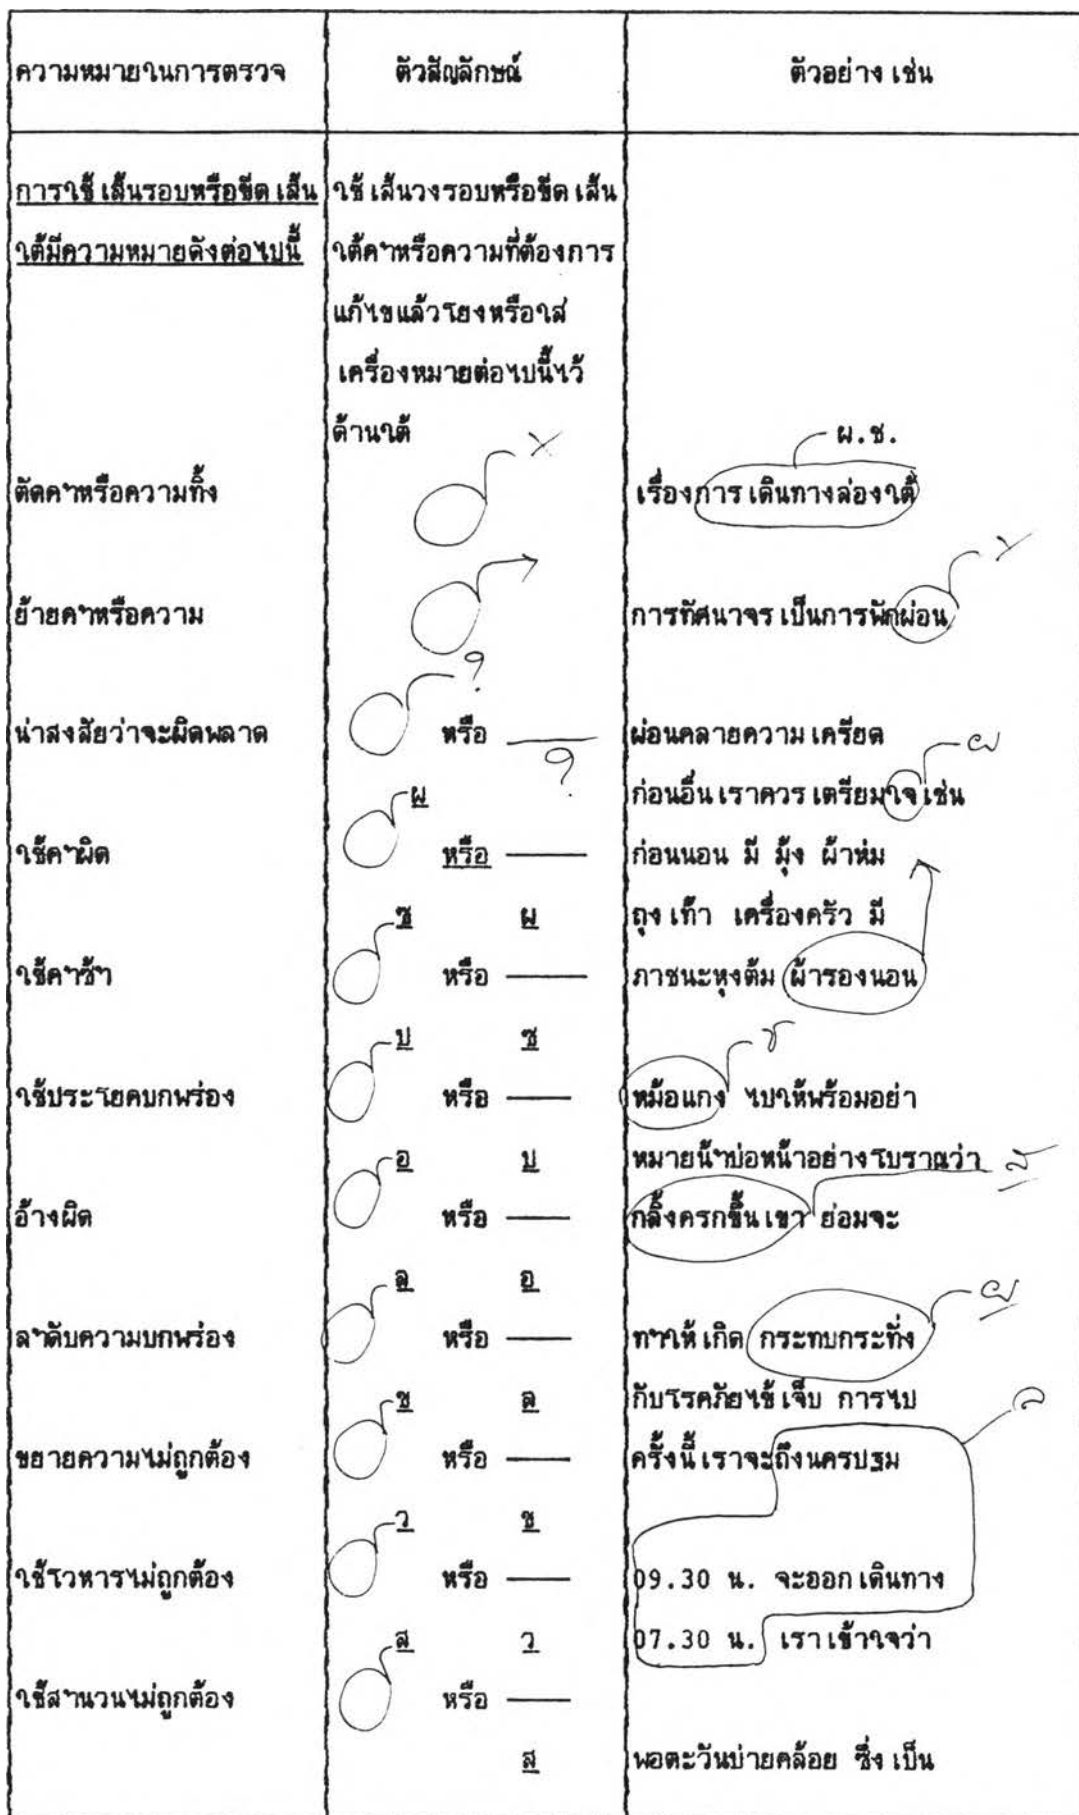 ความหมายในการตรวจ ตัวสัญลักษณ์ ตัวอย่าง เช่น
การใช้เส้นรอบหรือขีดเส้น ใช้เส้นวงรอบหรือขีดเส้น
ใต้มีความหมายดังต่อไปนี้ ใต้คำหรือความที่ต้องการ
แก้ไขแล้วโยงหรือใส่
เครื่องหมายต่อไปนี้ไว้
ด้านใต้ ผ.ช.
ตัดคำหรือความทิ้ง × เรื่องการเดินทางล่องใต้
ย้ายคำหรือความ การทัศนาจรเป็นการพักผ่อน ×
น่าสงสัยว่าจะผิดพลาด ? หรือ ? ผ่อนคลายความเครียด
ผ ก่อนอื่นเราควรเตรียมใจเช่น ผ
ใช้คำผิด หรือ ก่อนนอน มี มุ้ง ผ้าห่ม
ซ ผ ถุงเท้า เครื่องครัว มี
ใช้คำซ้ำ หรือ ภาชนะหุงต้ม ผ้ารองนอน
ป ซ
ใช้ประโยคบกพร่อง หรือ หม้อแกง ไปให้พร้อมอย่า
อ ป หมายน้ำบ่อหน้าอย่างโบราณว่า
อ้างผิด หรือ กลิ้งครกขึ้นเขา ย่อมจะ
ล อ
ลำดับความบกพร่อง หรือ ทำให้เกิด กระทบกระทั่ง ผ
ข ล กับโรคภัยไข้เจ็บ การไป ล
ขยายความไม่ถูกต้อง หรือ ครั้งนี้เราจะถึงนครปฐม
ว ข
ใช้โวหารไม่ถูกต้อง หรือ 09.30 น. จะออกเดินทาง
ส ว 07.30 น. เราเข้าใจว่า
ใช้สำนวนไม่ถูกต้อง หรือ
ส พอตะวันบ่ายคล้อย ซึ่งเป็น